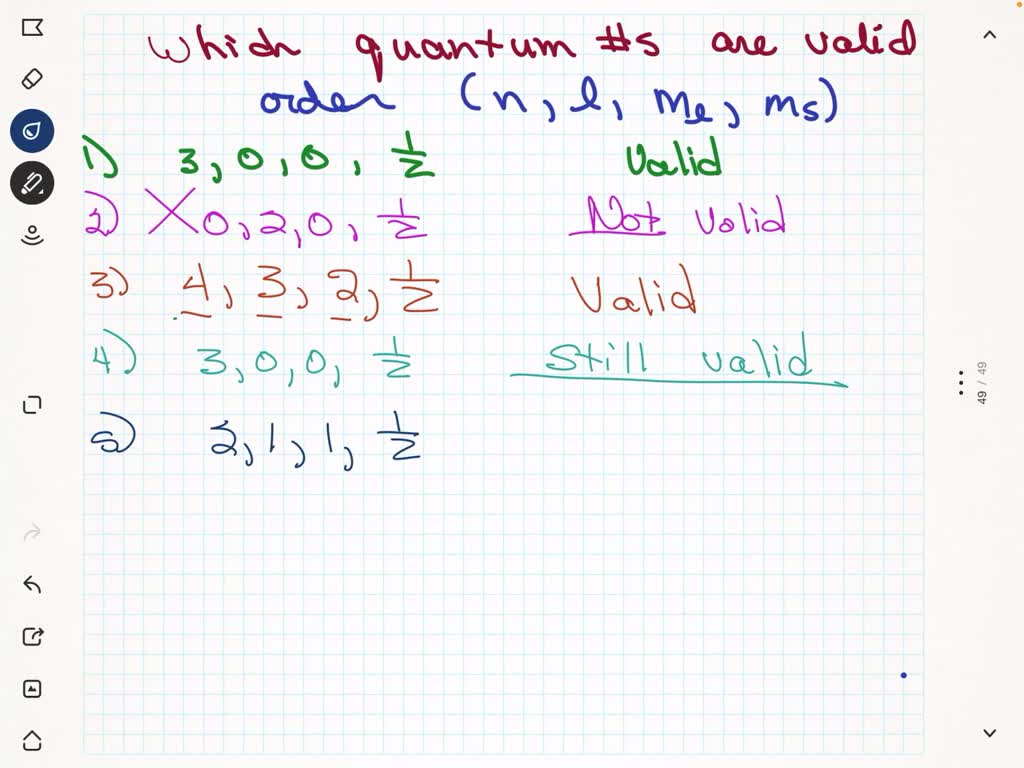 Which quantum #s are valid
order (n, l, ml, ms)
1) 3, 0, 0, 1/2 Valid
2) X 0, 2, 0, 1/2 Not valid
3) 4, 3, 2, 1/2 Valid
4) 3, 0, 0, 1/2 Still valid
5) 2, 1, 1, 1/2
49 / 49